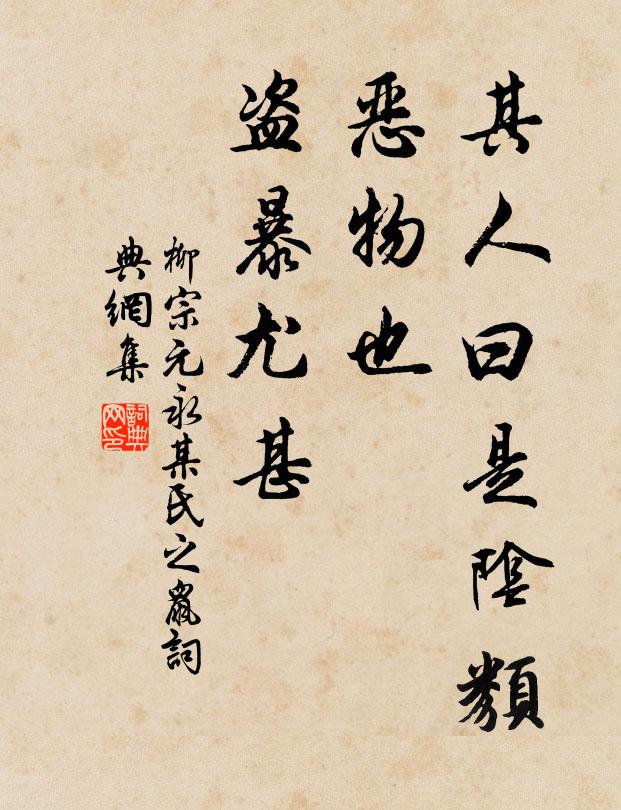 其人曰是陰類
惡物也
盗暴尤甚
柳宗元永某氏之鼠詞
典網集
詞典
网印